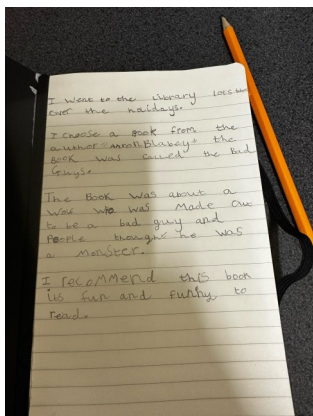 I Went to the Library lots
over the holidays.
I choose a Book from the
author Aaron Blabey the
BOOK was called the Bad
Guys.
The Book Was about a
Wolf who was Made Out
to be a bad guy and
People thought he was
a Monster.
I recommend this book
its fun and funny to
read.